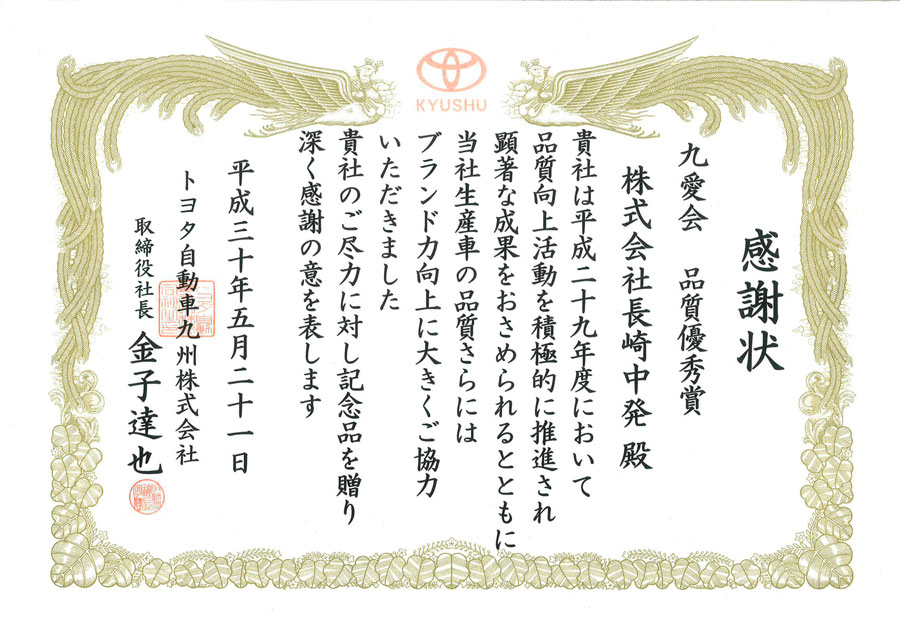 KYUSHU
感謝状
九愛会 品質優秀賞
株式会社長崎中発 殿
貴社は平成二十九年度において
品質向上活動を積極的に推進され
顕著な成果をおさめられるとともに
当社生産車の品質さらには
ブランド力向上に大きくご協力
いただきました
貴社のご尽力に対し記念品を贈り
深く感謝の意を表します
平成三十年五月二十一日
トヨタ自動車九州株式会社
取締役社長 金子達也